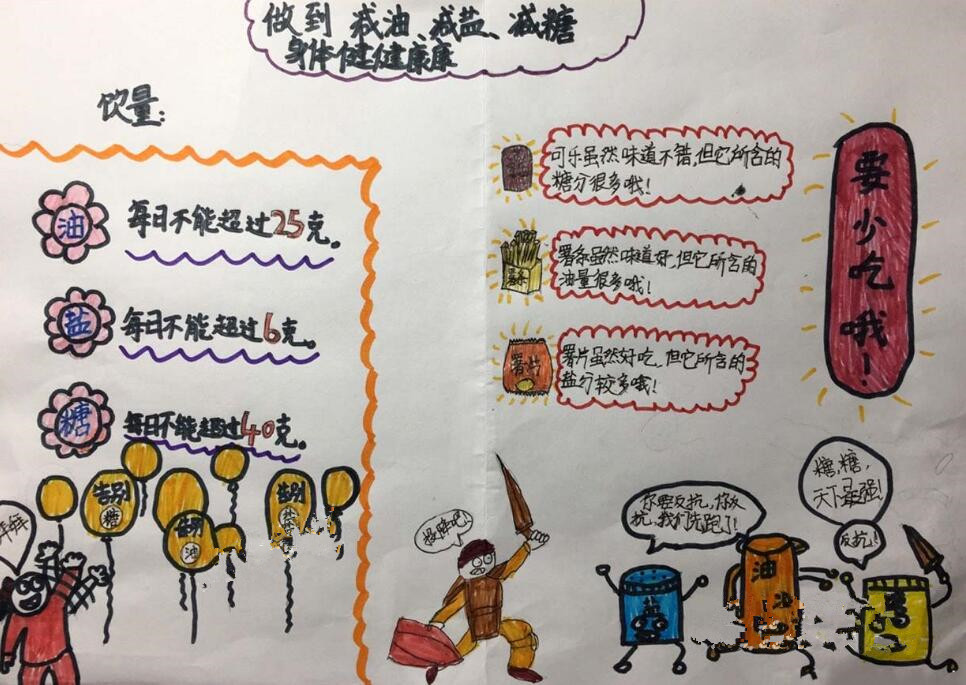 做到 减油、减盐、减糖
身体健健康康
饮量:
油
每日不能超过25克。
盐
每日不能超过6克。
糖
每日不能超过40克。
可乐虽然味道不错,但它所含的
糖分很多哦!
薯条虽然味道好,但它所含的
油量很多哦!
薯片
薯片虽然好吃,但它所含的
盐分较多哦!
要少吃哦!
告别
糖
告别
油
告别
盐
你要反抗,你反
抗,我们先跑了!
糖,糖,
天下最强!
反抗!
盐
油